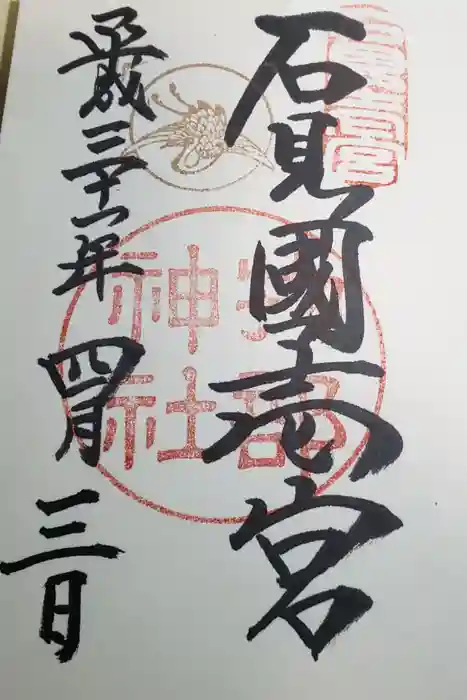 石見國壱宮
物部
神社
平成三十一年四月三日